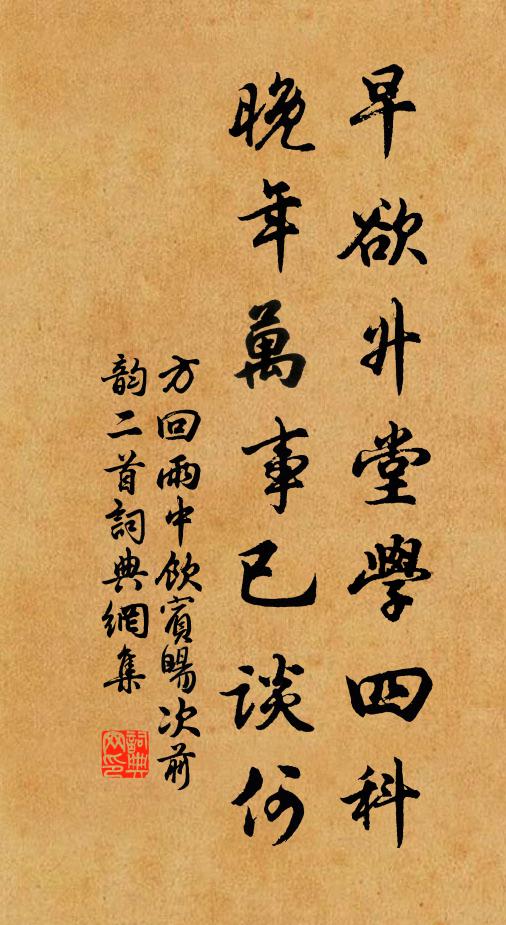 早欲升堂學四科
晚年萬事已談何
方回雨中飲賓暘次前
韵二首詞典網集
詞典
網印